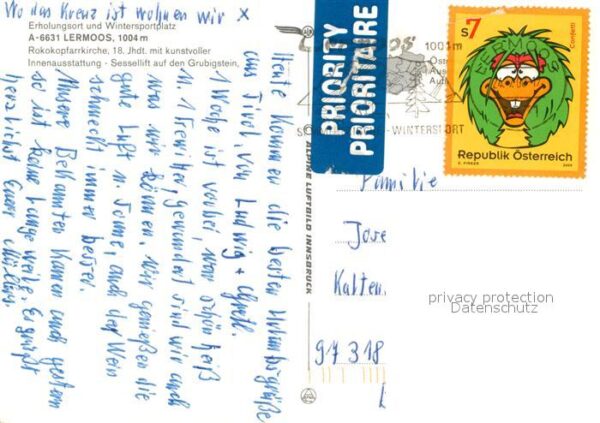 Wo das Kreuz ist wohnen wir x
Erholungsort und Wintersportplatz
A-6631 LERMOOS, 1004 m
Rokokopfarrkirche, 18. Jhdt. mit kunstvoller
Innenausstattung - Sessellift auf den Grubigstein,
Heute kommen die besten Urlaubsgrüße
aus Tirol, von Ludwig +
1 Woche ist vorbei, war schön heiß
u. 1 Gewitter, gewandert sind wir auch
was wir können. Wir genießen die
gute Luft u. Sonne, auch der Wein
schmeckt immer besser.
Unsere Bekannten kamen auch gestern
so ist keine Langeweile. Es grüßt
herzlichst Euer
PRIORITY
PRIORITAIRE
ALPINE LUFTBILD INNSBRUCK
LERMOOS
1004 m
WINTERSPORT
S 7
Confetti
LERMOOS
Republik Österreich
Familie
Jose
Kalten
97318
privacy protection
Datenschutz